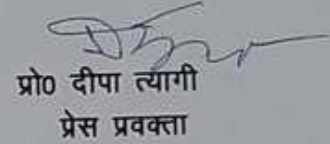 प्रो0 दीपा त्यागी
प्रेस प्रवक्ता